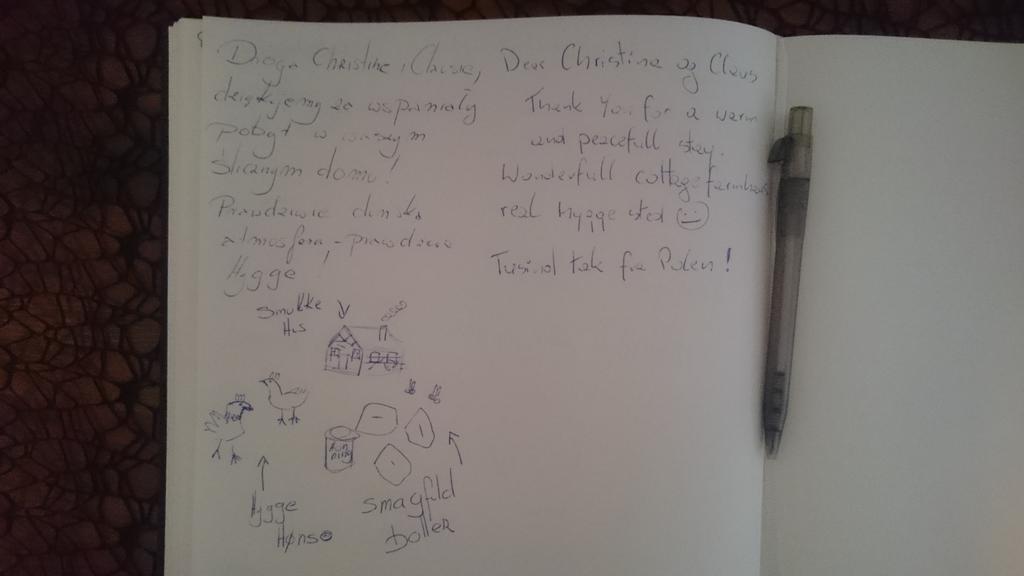 Droga Christine, Clausie,
dziękujemy za wspaniały
pobyt w waszym
ślicznym domu!
Prawdziwie duńska
atmosfera - prawdziwe
Hygge!
Dear Christina og Claus
Thank You for a warm
and peacefull stay.
Wonderfull cottage farmhouse
real Hygge sted
Tusind tak fra Polen!
Smukke
Hus
Hygge
Høns
Smagfuld
Boller